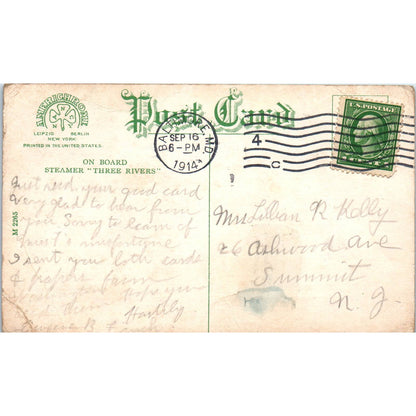 AMERICHROME
LEIPZIG BERLIN
NEW YORK
PRINTED IN THE UNITED STATES.
Post Card
BALTIMORE, MD.
SEP 16
6-PM
1914
4
C
U.S. POSTAGE
ON BOARD
STEAMER "THREE RIVERS"
M 2265
Just recd. your good card
Very glad to hear from
you Sorry to learn of
misfortune
I sent you both cards
& papers from
Hope you
Heartily
Eugene B.
Mrs Lillian R Kelly
26 Ashwood Ave
Summit
N. J.